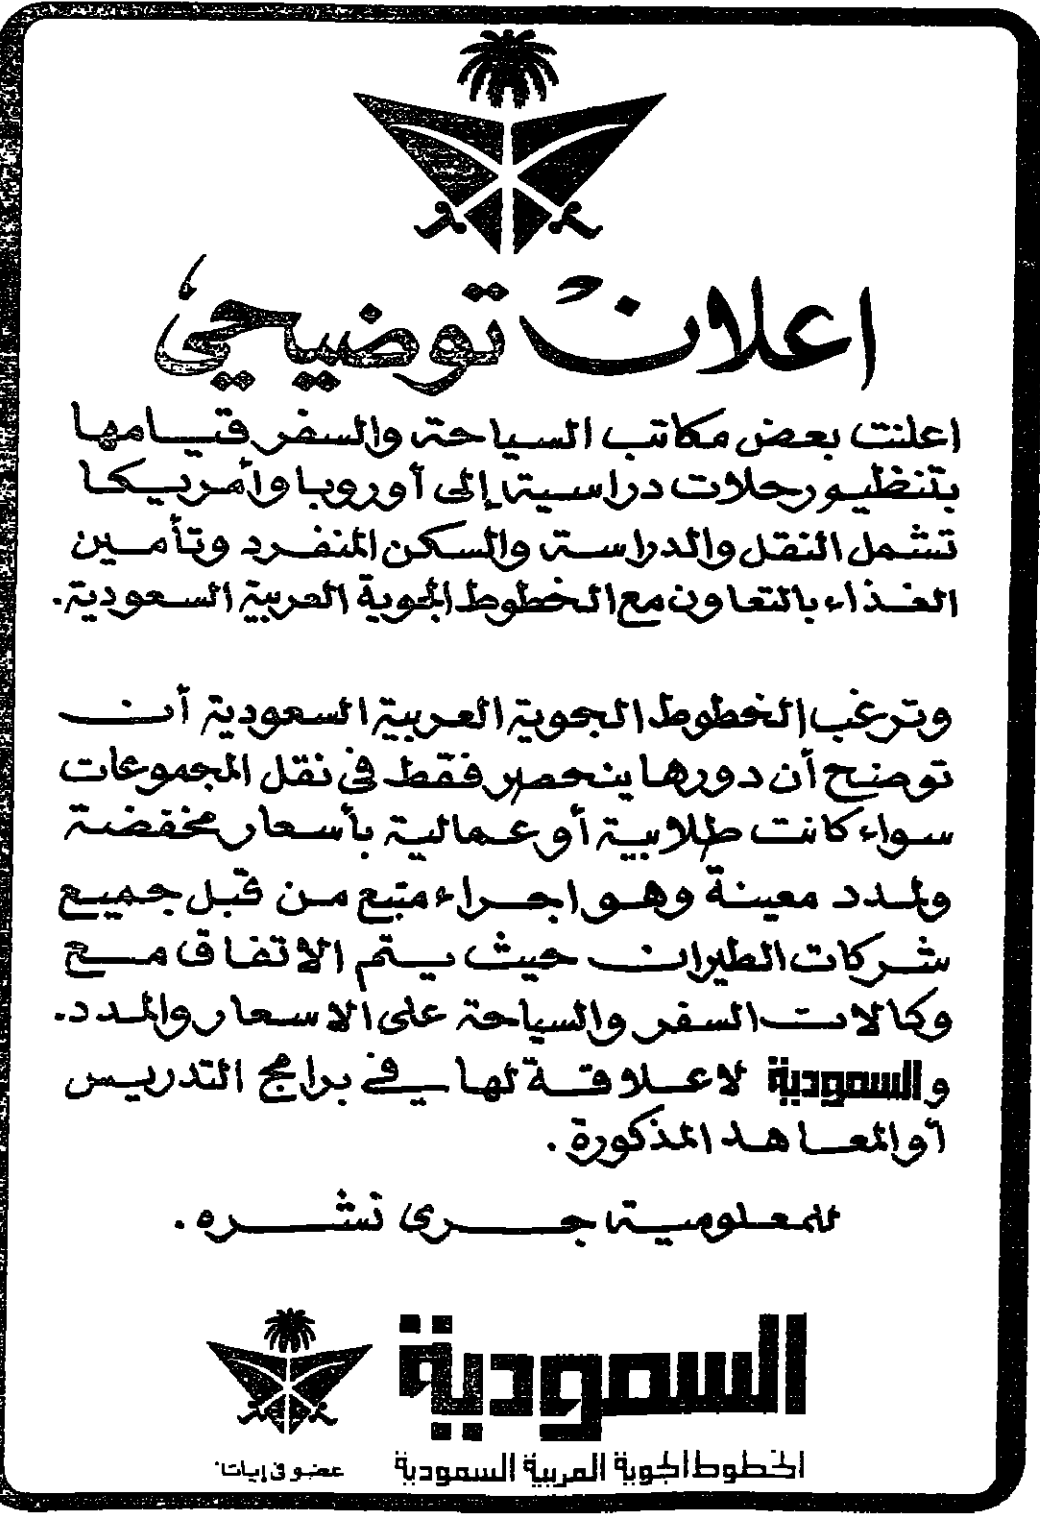 اعلان توضيحي
اعلنت بعض مكاتب السياحة والسفر قيامها
بتنظيم رحلات دراسية إلى أوروبا وأمريكا
تشمل النقل والدراسة والسكن المنفرد وتأمين
الغذاء بالتعاون مع الخطوط الجوية العربية السعودية.
وترغب الخطوط الجوية العربية السعودية أن
توضح أن دورها ينحصر فقط في نقل المجموعات
سواء كانت طلابية أو عمالية بأسعار مخفضة
ولمدد معينة وهو اجراء متبع من قبل جميع
شركات الطيران حيث يتم الاتفاق مع
وكالات السفر والسياحة على الاسعار والمدد.
والسعودية لاعلاقة لها في برامج التدريس
أو المعاهد المذكورة.
للمعلومية جرى نشره.
السعودية
الخطوط الجوية العربية السعودية
عضو في إياتا.